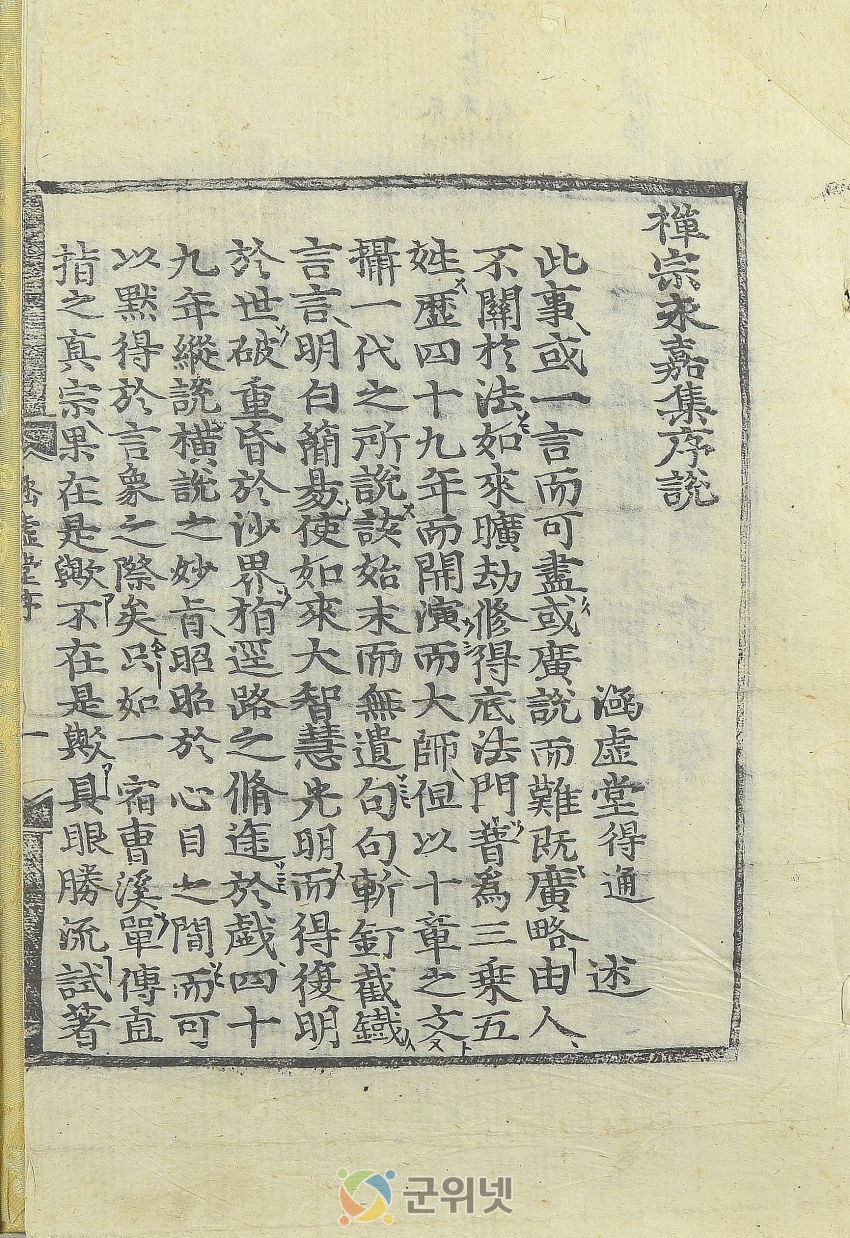 禪宗永嘉集序說
涵虛堂得通 述
此事或一言而可盡或廣說而難旣廣略由人
不關於法如來曠劫修得底法門普爲三乘五
姓歷四十九年而開演而大師但以十章之文
攝一代之所說該始末而無遺句句斬釘截鐵
言言明白簡易使如來大智慧光明而得復明
於世破重昏於沙界指逕路之脩途於戱四十
九年縱說橫說之妙旨昭昭於心目之間而可
以默得於言象之際矣只如一宿曹溪單傳直
指之真宗果在是歟不在是歟具眼勝流試著
涵虛堂序
一
군위넷